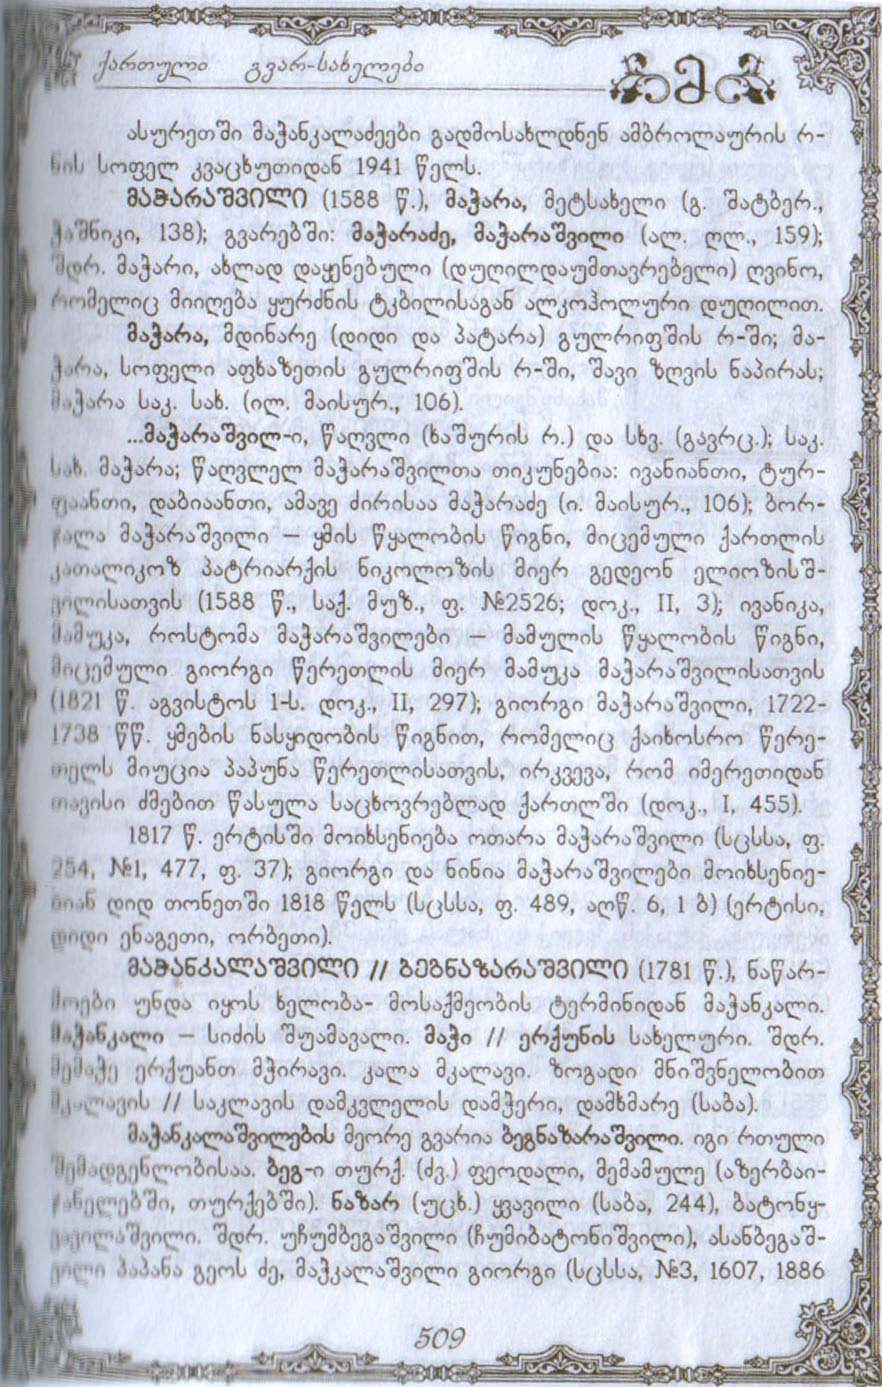 ქართული გვარ-სახელები
მ
ასურეთში მაჭანკალაძეები გადმოსახლდნენ ამბროლაურის რ-
ნის სოფელ კვაცხუთიდან 1941 წელს.
მაჭარაშვილი (1588 წ.), მაჭარა, მეტსახელი (გ. შატბერ.,
ჭაშნიკი, 138); გვარებში: მაჭარაძე, მაჭარაშვილი (ალ. ღლ., 159);
შდრ. მაჭარი, ახლად დაყენებული (დუღილდაუმთავრებელი) ღვინო,
რომელიც მიიღება ყურძნის ტკბილისაგან ალკოჰოლური დუღილით.
მაჭარა, მდინარე (დიდი და პატარა) გულრიფშის რ-ში; მა-
ჭარა, სოფელი აფხაზეთის გულრიფშის რ-ში, შავი ზღვის ნაპირას;
მაჭარა საკ. სახ. (ილ. მაისურ., 106).
...მაჭარაშვილ-ი, წაღვლი (ხაშურის რ.) და სხვ. (გავრც.); საკ.
სახ. მაჭარა; წაღვლელ მაჭარაშვილთა თიკუნებია: ივანიანთი, ტურ-
ფაანთი, დაბიაანთი, ამავე ძირისაა მაჭარაძე (ი. მაისურ., 106); ბორ-
მაჭარაშვილი – ყმის წყალობის წიგნი, მიცემული ქართლის
კათალიკოზ პატრიარქის ნიკოლოზის მიერ გედეონ ელიოზისშ-
ვილისათვის (1588 წ., საქ. მუზ., ფ. №2526; დოკ., II, 3); ივანიკა,
მამუკა, როსტომა მაჭარაშვილები – მამულის წყალობის წიგნი,
მიცემული გიორგი წერეთლის მიერ მამუკა მაჭარაშვილისათვის
(1821 წ. აგვისტოს 1-ს. დოკ., II, 297); გიორგი მაჭარაშვილი, 1722-
1738 წწ. ყმების ნასყიდობის წიგნით, რომელიც ქაიხოსრო წერე-
თელს მიუცია პაპუნა წერეთლისათვის, ირკვევა, რომ იმერეთიდან
თავისი ძმებით წასულა საცხოვრებლად ქართლში (დოკ., I, 455).
1817 წ. ერტისში მოიხსენიება ოთარა მაჭარაშვილი (სცსსა, ფ.
254, №1, 477, ფ. 37); გიორგი და ნინია მაჭარაშვილები მოიხსენიე-
ბიან დიდ თონეთში 1818 წელს (სცსსა, ფ. 489, აღწ. 6, 1 ბ) (ერტისი,
დიდი ენაგეთი, ორბეთი).
მაჭანკალაშვილი // ბეგნაზარაშვილი (1781 წ.), ნაწარ-
მოები უნდა იყოს ხელობა- მოსაქმეობის ტერმინიდან მაჭანკალი.
მაჭანკალი – სიძის შუამავალი. მაჭი // ერქუნის სახელური. შდრ.
მემაჭე ერქუანთ მჭირავი. კალა მკალავი. ზოგადი მნიშვნელობით
მკალავის // საკლავის დამკვლელის დამჭერი, დამხმარე (საბა).
მაჭანკალაშვილების მეორე გვარია ბეგნაზარაშვილი. იგი რთული
შემადგენლობისაა. ბეგ-ი თურქ. (ძვ.) ფეოდალი, მემამულე (აზერბაი-
ჯანელებში, თურქებში). ნაზარ (უცხ.) ყვავილი (საბა, 244), ბატონყ-
ვავილაშვილი. შდრ. უჩუმბეგაშვილი (ჩუმიბატონიშვილი), ასანბეგაშ-
ვილი პაპანა გეოს ძე, მაჭკალაშვილი გიორგი (სცსსა, №3, 1607, 1886
509